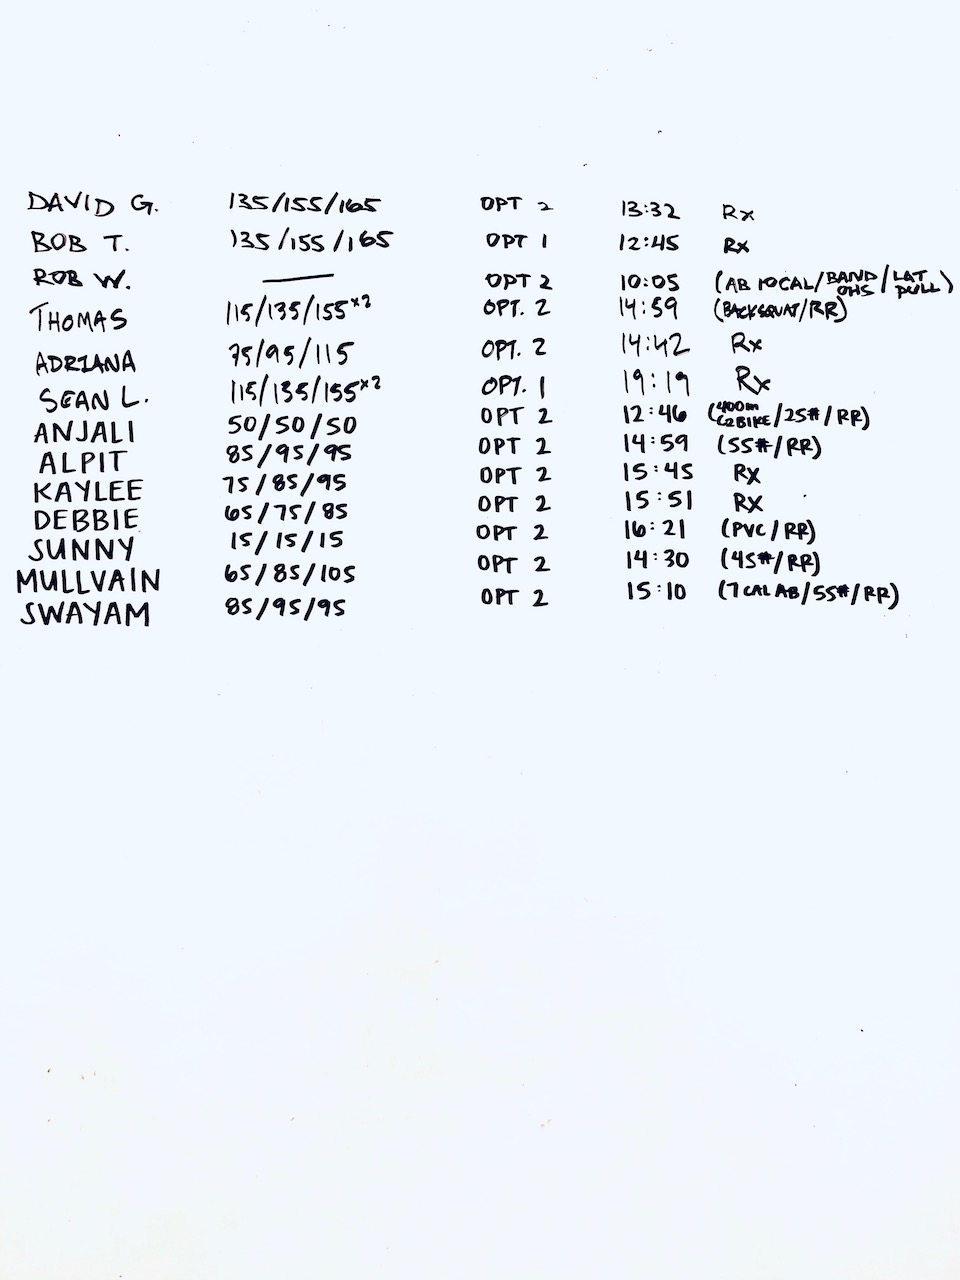 DAVID G. 135/155/165 OPT 2 13:32 Rx
BOB T. 135/155/165 OPT 1 12:45 Rx
ROB W. — OPT 2 10:05 (AB 10CAL/BAND OHS/LAT PULL)
THOMAS 115/135/155x2 OPT. 2 14:59 (BACKSQUAT/RR)
ADRIANA 75/95/115 OPT. 2 14:42 Rx
SEAN L. 115/135/155x2 OPT. 1 19:19 Rx
ANJALI 50/50/50 OPT 2 12:46 (400m C2BIKE/25#/RR)
ALPIT 85/95/95 OPT 2 14:59 (55#/RR)
KAYLEE 75/85/95 OPT 2 15:45 Rx
DEBBIE 65/75/85 OPT 2 15:51 Rx
SUNNY 15/15/15 OPT 2 16:21 (PVC/RR)
MULLVAIN 65/85/105 OPT 2 14:30 (45#/RR)
SWAYAM 85/95/95 OPT 2 15:10 (7 CAL AB/55#/RR)